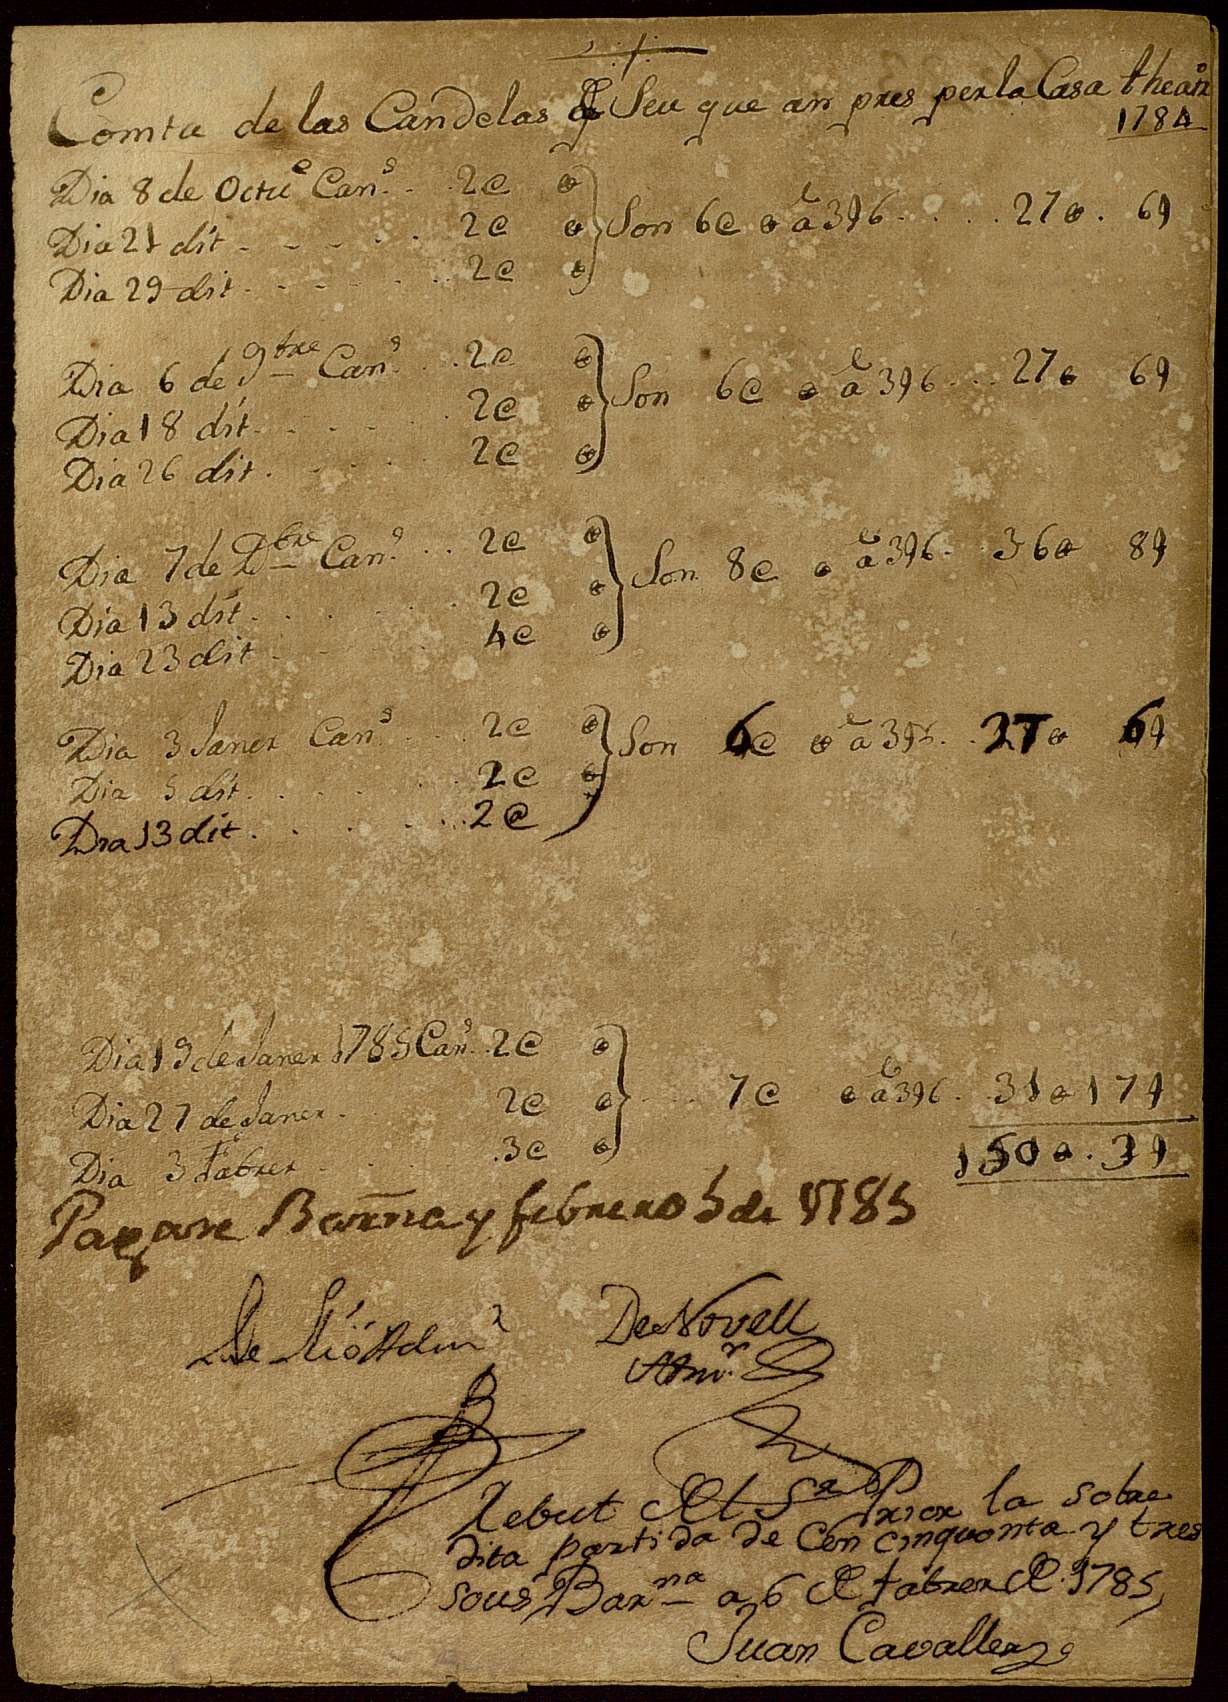 Comta de las Candelas de Seu que an pres per la Casa theatr
1784
Dia 8 de Octu.e Can.s . . 2 @
Dia 21 dit . . . . . 2 @ Son 6 @ à 39 6 . . . . 27 . 6 9
Dia 29 dit . . . . . 2 @
Dia 6 de 9bre Can.s . . 2 @
Dia 18 dit . . . . . 2 @ Son 6 @ à 39 6 . . . 27 6 9
Dia 26 dit . . . . . 2 @
Dia 7 de Dbre Can.s . . 2 @
Dia 13 dit . . . . . 2 @ Son 8 @ à 39 6 . . 36 8 9
Dia 23 dit . . . . . 4 @
Dia 3 Janer Can.s . . 2 @ Son 6 @ à 39 6 . . 27 6 9
Dia 5 dit . . . . . 2 @
Dia 13 dit . . . . . 2 @
Dia 19 de Janer 1785 Can.s . 2 @
Dia 27 de Janer . 2 @ . . . 7 @ à 39 6 . 31 17 9
Dia 3 Fabrer . . . . 3 @
150 . 3 9
Pagare Barna y febrero 5 de 1785
De Novell
Adm.r
Rebut del Sr Prior la sobre
dita partida de Cen cinquonta y tres
sous Barna a 6 de fabrer de 1785
Juan Cavaller